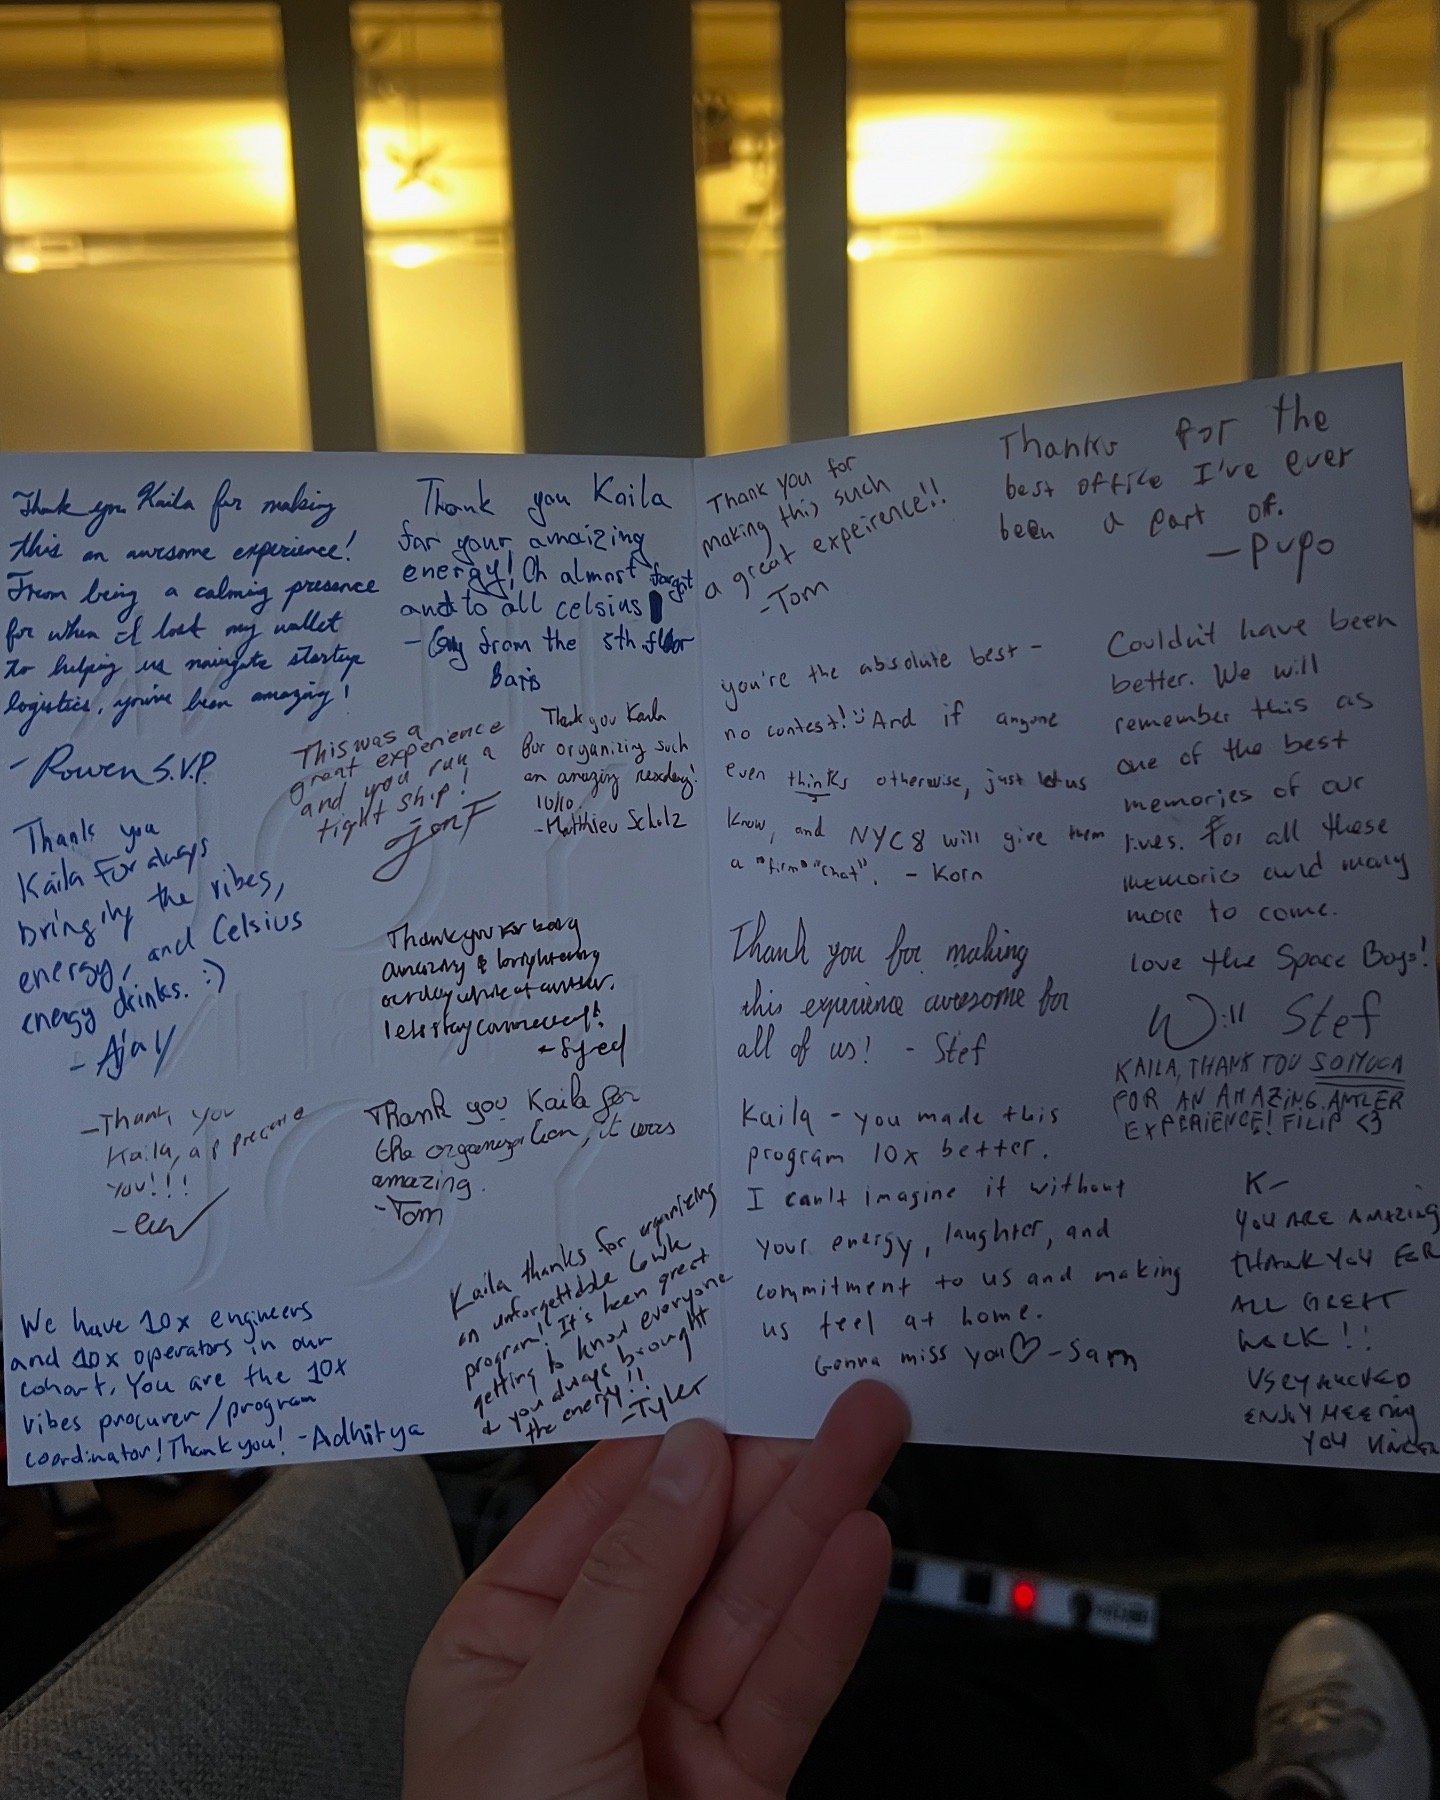 Thank you Kaila for making
this an awesome experience!
From being a calming presence
for when I lost my wallet
to helping us navigate startup
logistics, you've been amazing!
- Rowen S.V.P.
Thank you Kaila
for your amaizing
energy! Oh almost forgot
and to all celsius
- Guy from the 5th floor
Baris
This was a
great experience
and you run a
tight ship!
Thank you Kaila
for organizing such
an amazing
10/10
- Matthieu Scholz
Thank you
Kaila For always
bringing the vibes,
energy, and Celsius
energy drinks. :)
- Ajay
Thank you for being
amazing & brightening
our day while at antler.
Lets stay connected!
- Syed
- Thank you
Kaila, appreciate
you!!!
Thank you Kaila for
the organization, it was
amazing.
- Tom
Kaila thanks for organizing
an unforgettable 6wk
program! It's been great
getting to know everyone
& you always brought
the energy!!
- Tyler
We have 10x engineers
and 10x operators in our
cohort. You are the 10x
vibes procurer/program
coordinator! Thank you! - Adhitya
Thank you for
making this such
a great expeirence!!
- Tom
Thanks for the
best office I've ever
been a part of.
- Pupo
you're the absolute best -
no contest! And if anyone
even thinks otherwise, just let us
know, and NYC8 will give them
a "firm" "chat". - Korn
Couldn't have been
better. We will
remember this as
one of the best
memories of our
lives. For all these
memories and many
more to come.
love the Space Boys!
Will Stef
Thank you for making
this experience awesome for
all of us! - Stef
KAILA, THANK YOU SO MUCH
FOR AN AMAZING ANTLER
EXPERIENCE! FILIP <3
Kaila - you made this
program 10x better.
I can't imagine it without
your energy, laughter, and
commitment to us and making
us feel at home.
Gonna miss you♡ - Sam
K-
YOU ARE AMAZING
THANK YOU FOR
ALL GREAT
WORK!!
ENJOY MEETING
YOU